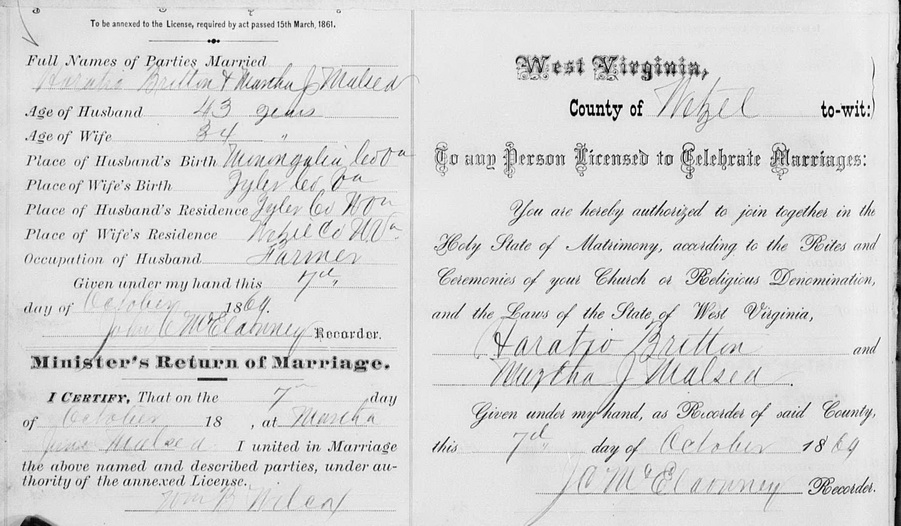 To be annexed to the License, required by act passed 15th March, 1861.
Full Names of Parties Married
Haratio Britton & Martha J Malsed
Age of Husband 43 years
Age of Wife 34 "
Place of Husband's Birth Monongalia Co Va
Place of Wife's Birth Tyler Co Va
Place of Husband's Residence Tyler Co W Va
Place of Wife's Residence Wetzel Co W Va
Occupation of Husband Farmer
Given under my hand this 7th
day of October 1869.
John C McEldowney Recorder.
Minister's Return of Marriage.
I CERTIFY, That on the 7th day
of October 18 , at Martha
Jane Malsed I united in Marriage
the above named and described parties, under au-
thority of the annexed License.
Wm B Wilcox
West Virginia,
County of Wetzel to-wit:
To any Person Licensed to Celebrate Marriages:
You are hereby authorized to join together in the
Holy State of Matrimony, according to the Rites and
Ceremonies of your Church or Religious Denomination,
and the Laws of the State of West Virginia,
Haratio Britton and
Martha J Malsed.
Given under my hand, as Recorder of said County,
this 7th day of October 1869
J C McEldowney Recorder.